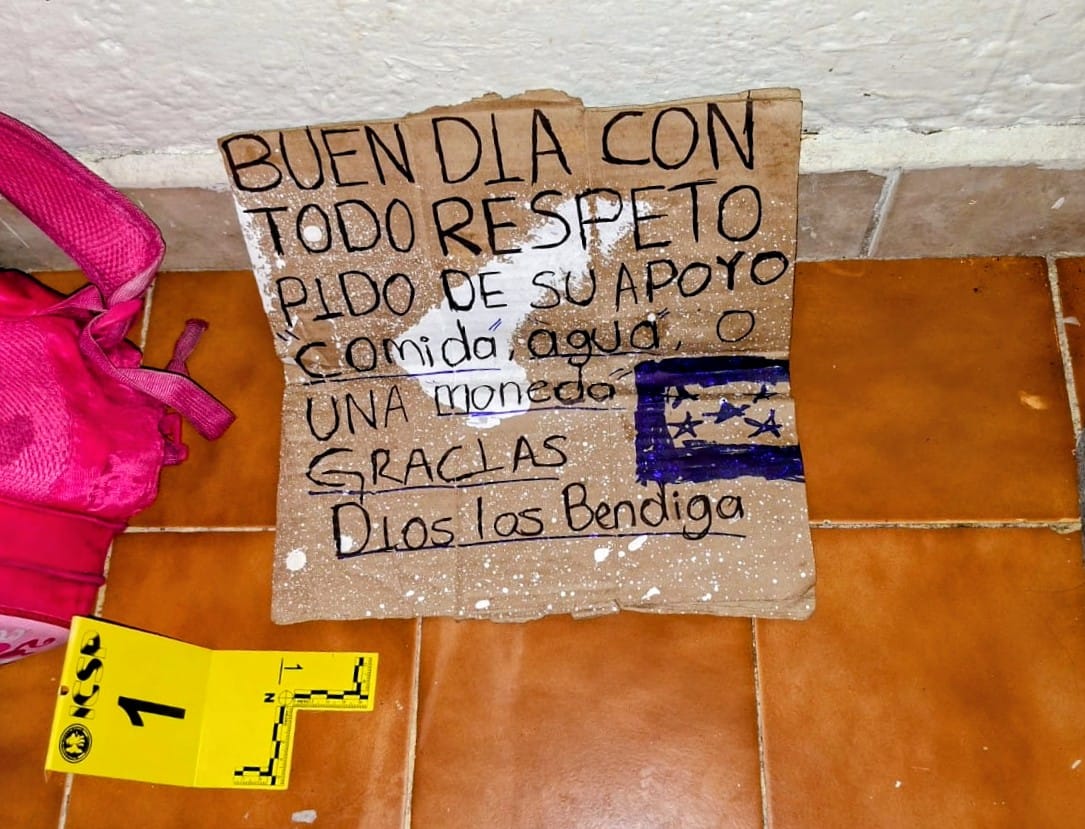 BUEN DIA CON
TODO RESPETO
PIDO DE SU APOYO
"comida", agua", O
UNA moneda"
GRACIAS
DIos los Bendiga
1
1
N